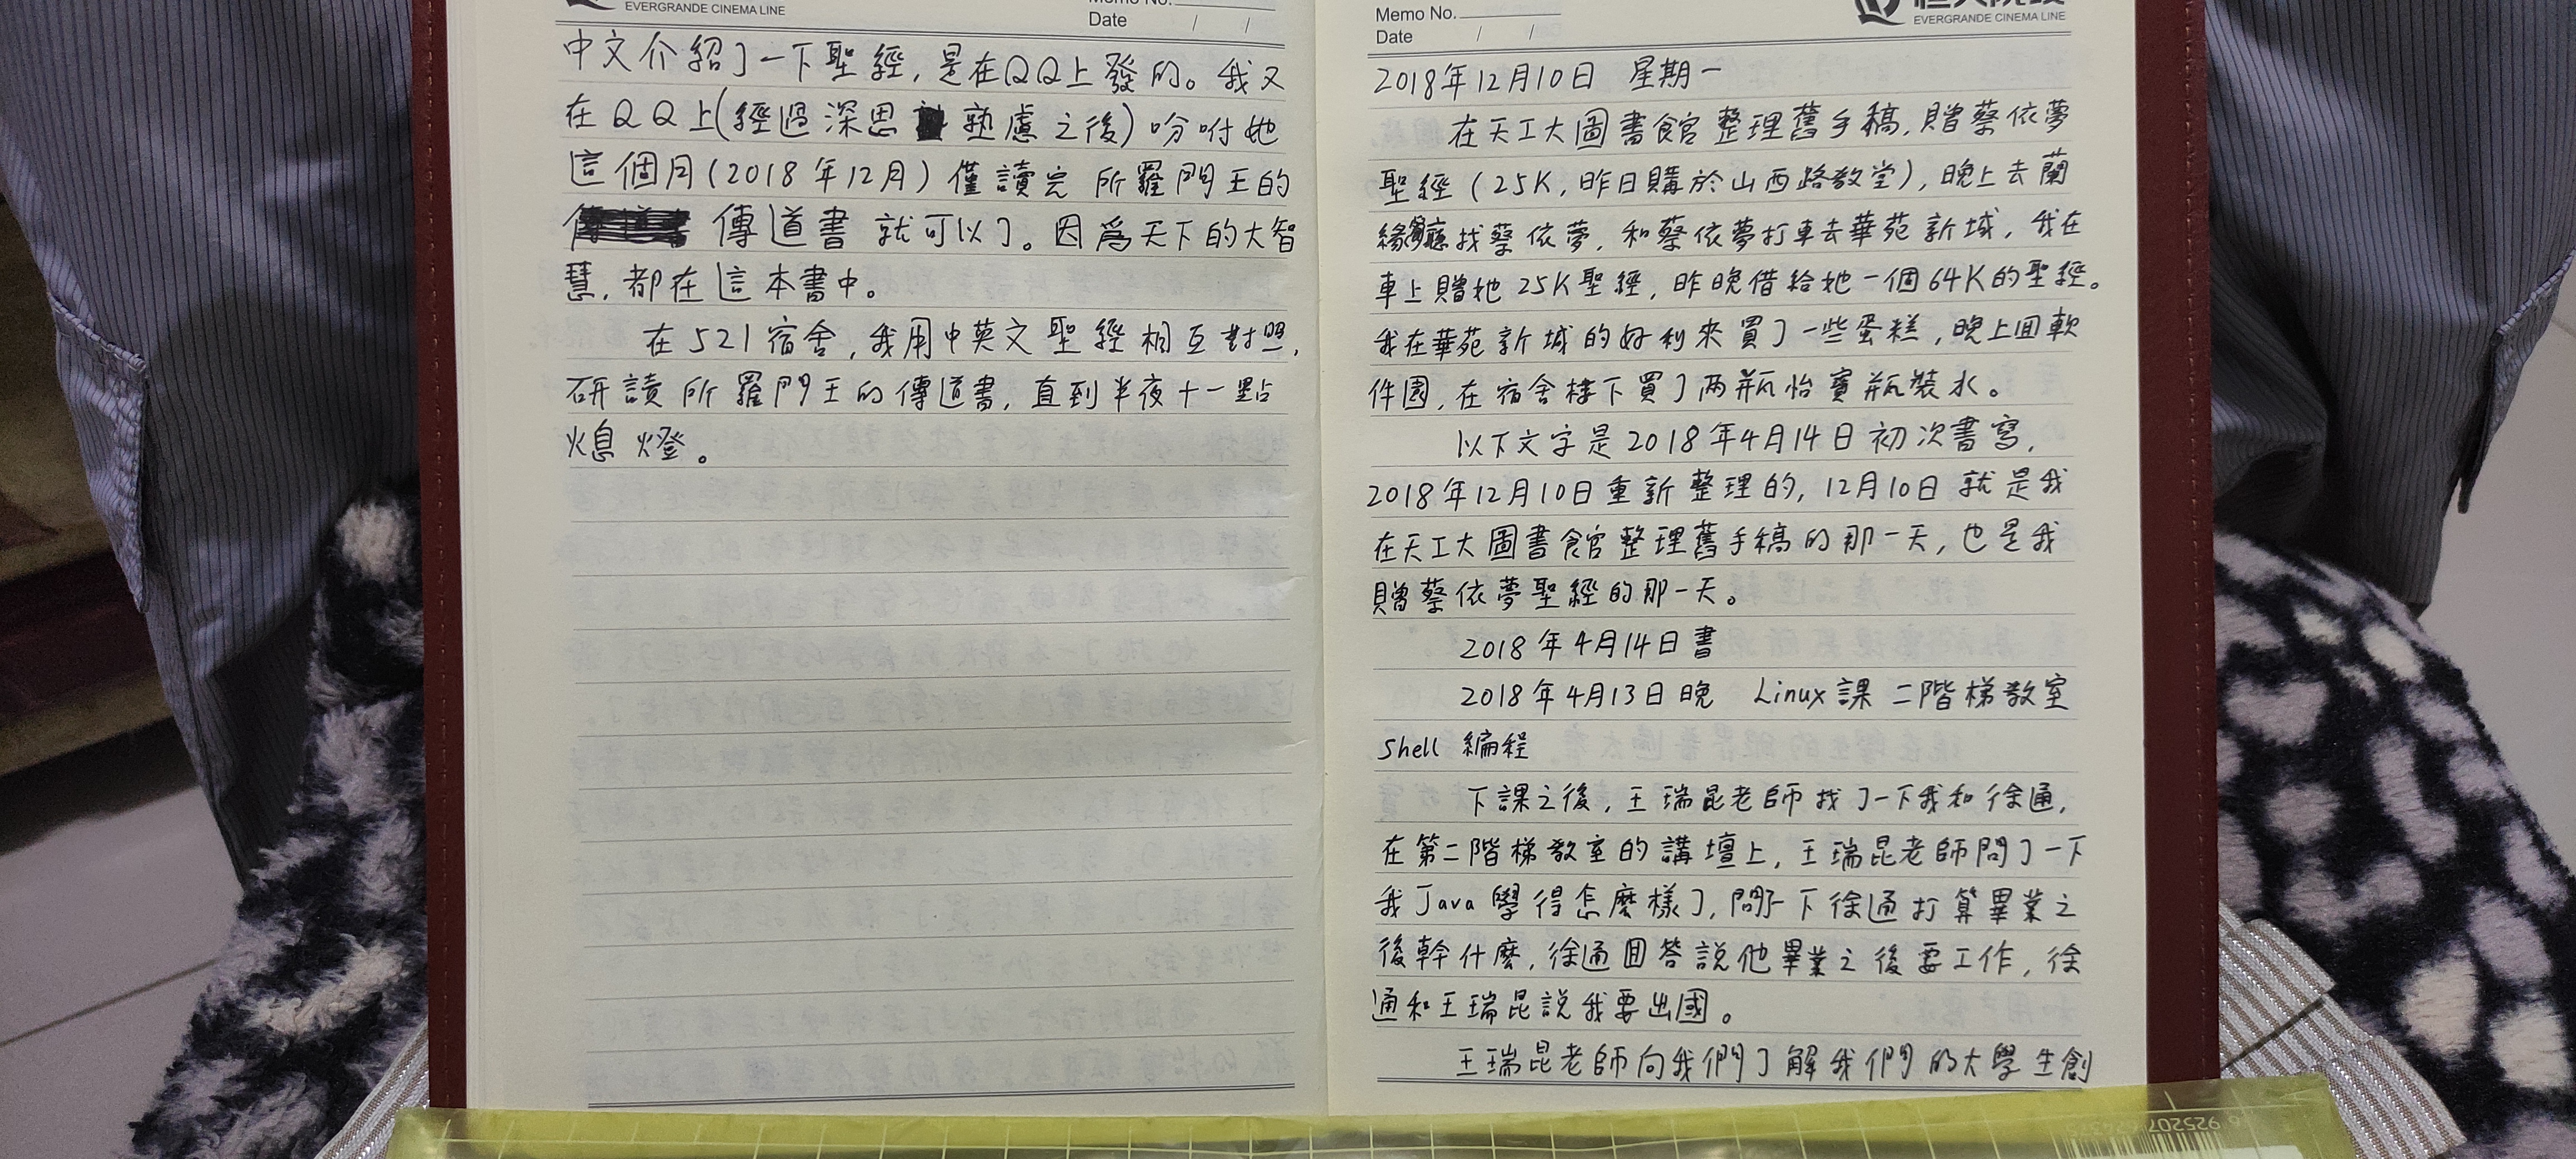 EVERGRANDE CINEMA LINE
Memo No.
Date / /
中文介紹了一下聖經,是在QQ上發的。我又
在QQ上(經過深思熟慮之後)吩咐她
這個月(2018年12月)僅讀完所羅門王的
傳道書就可以了。因爲天下的大智
慧,都在這本書中。
在521宿舍,我用中英文聖經相互對照,
研讀所羅門王的傳道書,直到半夜十一點
熄燈。
Memo No.
Date / /
EVERGRANDE CINEMA LINE
2018年12月10日 星期一
在天工大圖書館整理舊手稿,贈蔡依夢
聖經(25K,昨日購於山西路教堂),晚上去蘭
緣找蔡依夢,和蔡依夢打車去華苑新城,我在
車上贈她25K聖經,昨晚借給她一個64K的聖經。
我在華苑新城的好利來買了一些蛋糕,晚上回軟
件園,在宿舍樓下買了两瓶怡寶瓶裝水。
以下文字是2018年4月14日初次書寫,
2018年12月10日重新整理的,12月10日就是我
在天工大圖書館整理舊手稿的那一天,也是我
贈蔡依夢聖經的那一天。
2018年4月14日書
2018年4月13日晚 Linux課 二階梯教室
Shell 編程
下課之後,王瑞昆老師找了一下我和徐通,
在第二階梯教室的講壇上,王瑞昆老師問了一下
我Java學得怎麼樣了,問了一下徐通打算畢業之
後幹什麼,徐通回答說他畢業之後要工作,徐
通和王瑞昆說我要出國。
王瑞昆老師向我們了解我們的大學生創